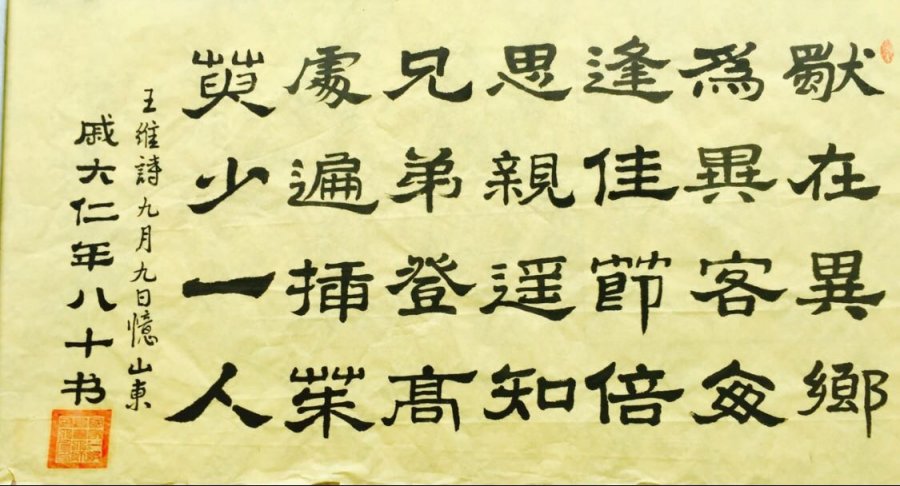 獨在異鄉
爲異客每
逢佳節倍
思親遥知
兄弟登髙
處遍插茱
萸少一人
王維詩九月九日憶山東
戚大仁年八十书